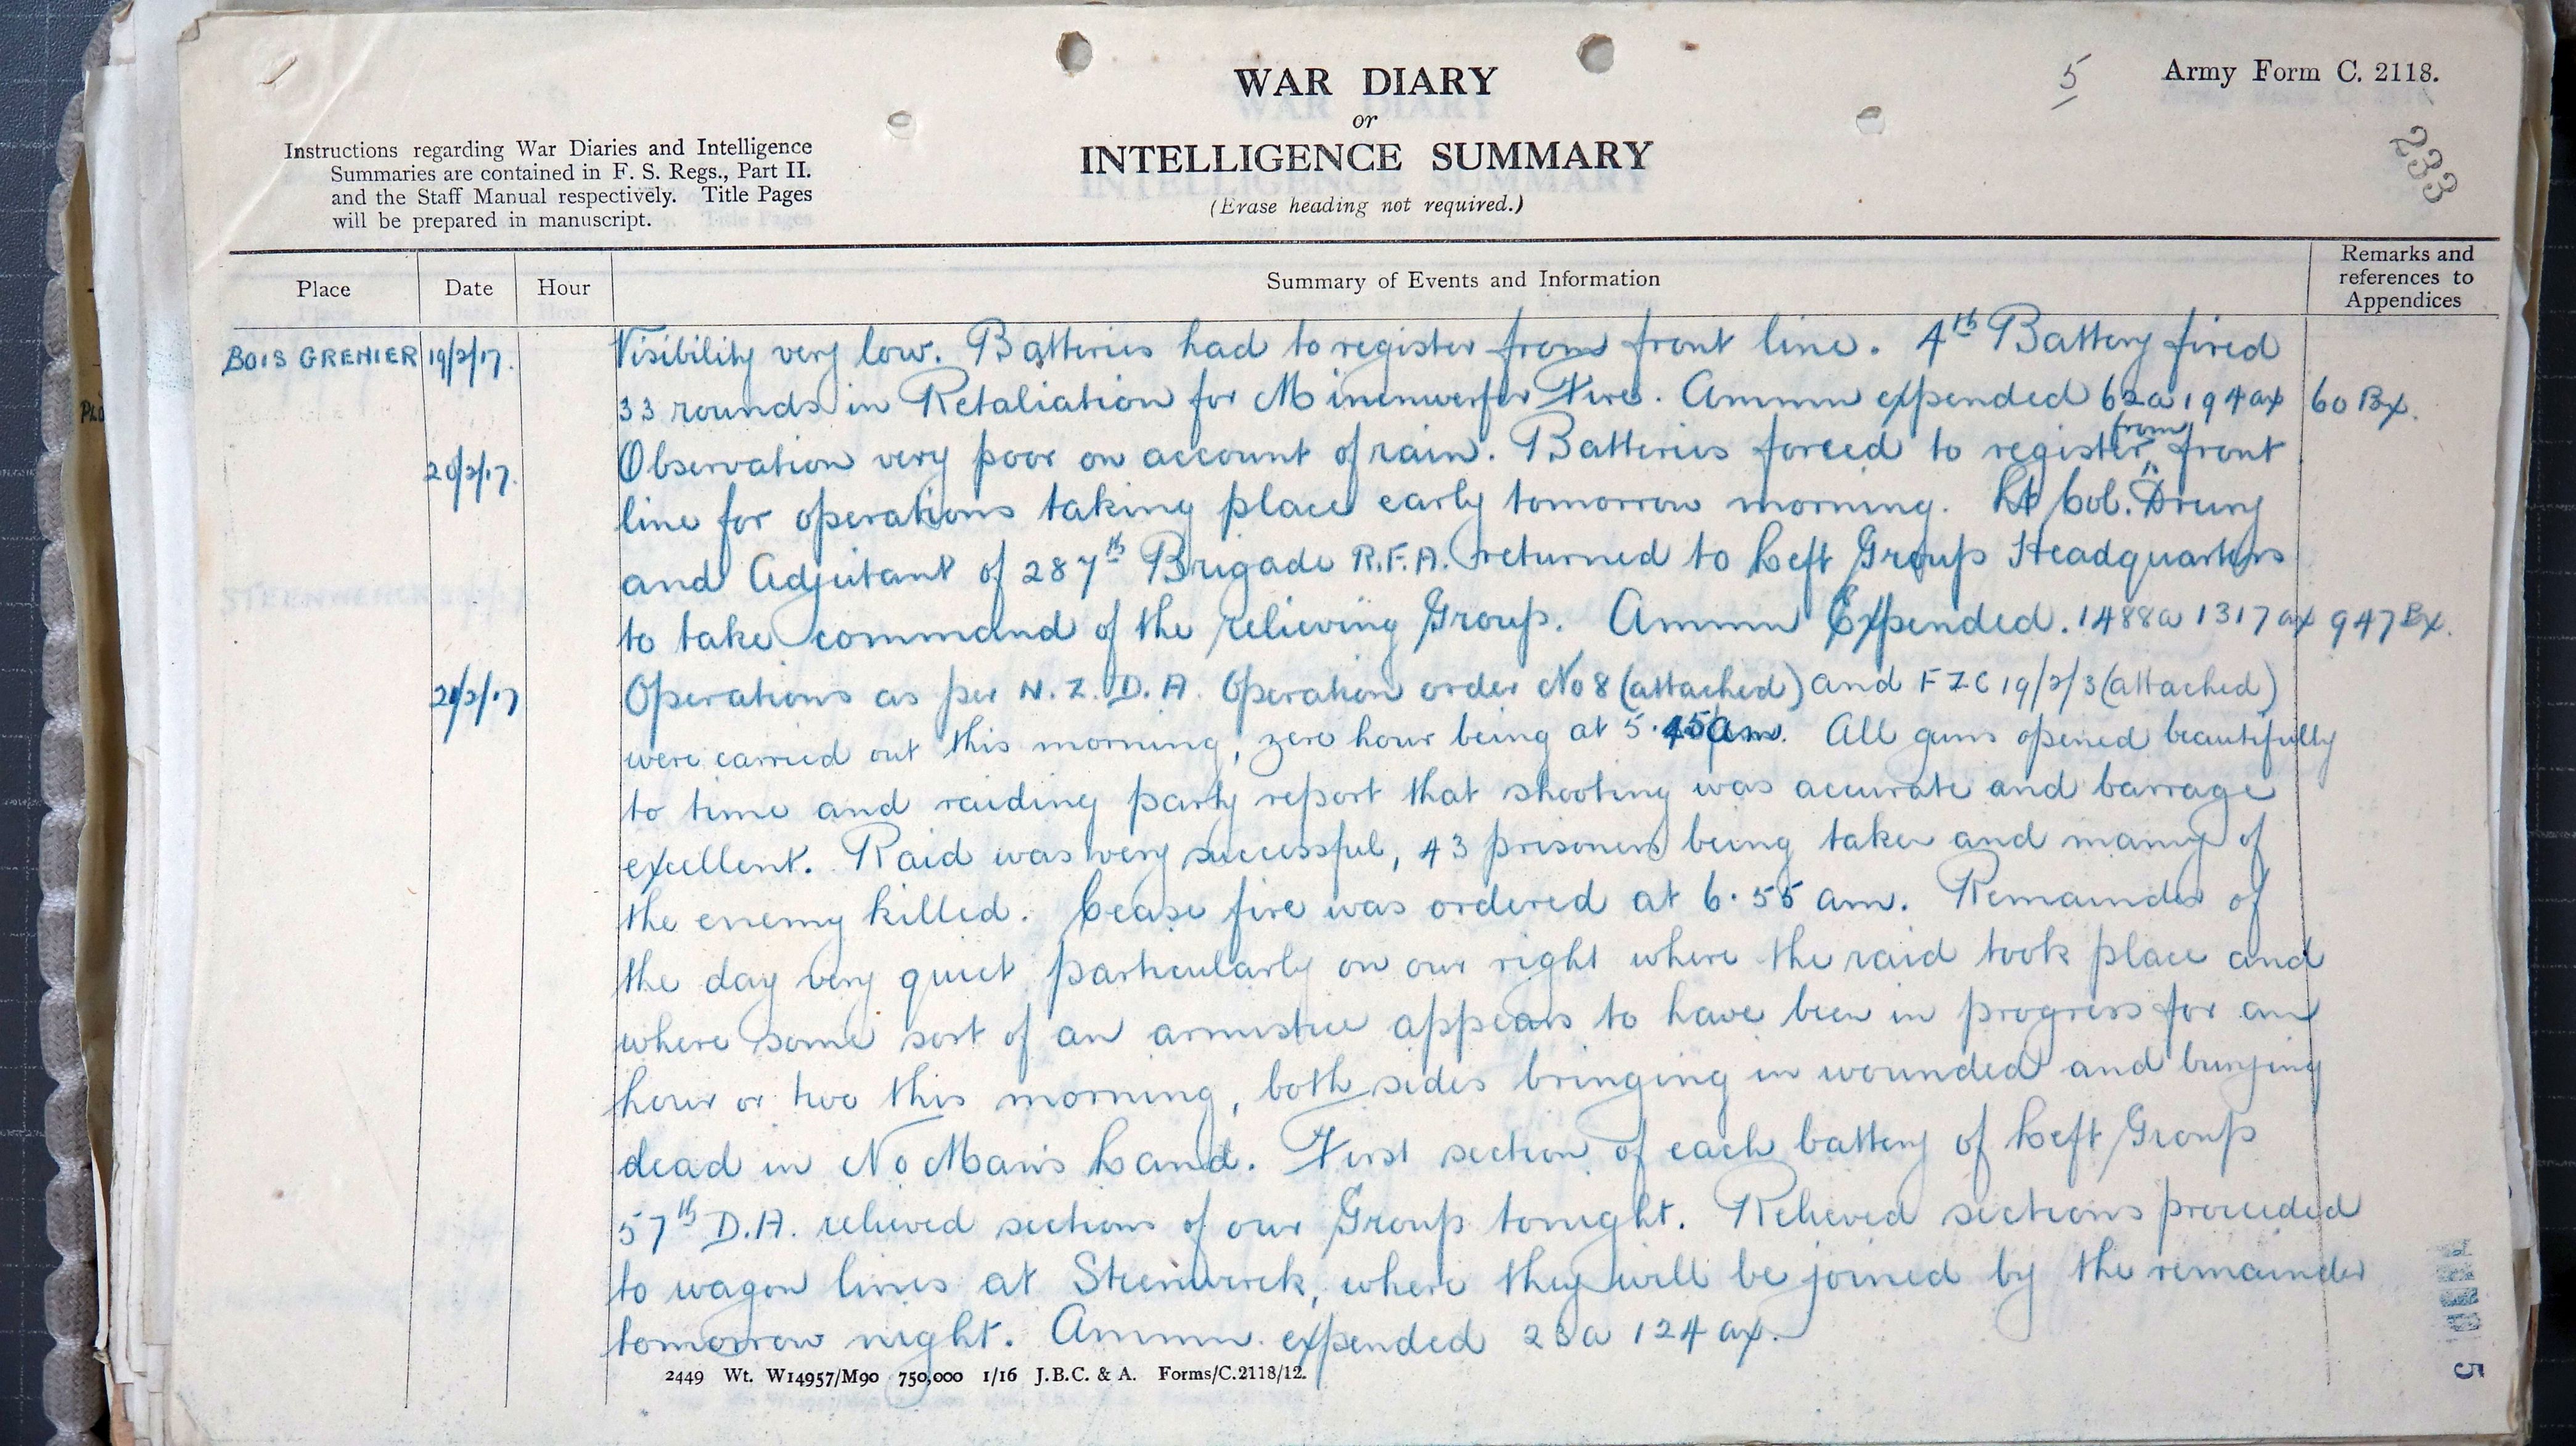 5
Army Form C. 2118.
233
WAR DIARY
or
INTELLIGENCE SUMMARY
(Erase heading not required.)
Instructions regarding War Diaries and Intelligence
Summaries are contained in F. S. Regs., Part II.
and the Staff Manual respectively. Title Pages
will be prepared in manuscript.
Place Date Hour Summary of Events and Information Remarks and references to Appendices
BOIS GRENIER 19/2/17. Visibility very low. Batteries had to register from front line. 4th Battery fired
33 rounds in Retaliation for Minenwerfer Fire. Ammn expended 62a 194ax 60 Bx.
20/2/17. Observation very poor on account of rain. Batteries forced to register from front
line for operations taking place early tomorrow morning. Lt Col. Drury
and Adjutant of 287th Brigade R.F.A. returned to Left Group Headquarters
to take command of the relieving Group. Ammn Expended. 1488a 1317ax 947Bx.
21/2/17 Operations as per N.Z.D.A. Operation order No 8 (attached) and FZC 19/2/3 (attached)
were carried out this morning, zero hour being at 5.45am. All guns opened beautifully
to time and raiding party report that shooting was accurate and barrage
excellent. Raid was very successful, 43 prisoners being taken and many of
the enemy killed. Cease fire was ordered at 6.55 am. Remainder of
the day very quiet particularly on our right where the raid took place and
where some sort of an armistice appears to have been in progress for an
hour or two this morning, both sides bringing in wounded and burying
dead in No Man's Land. First section of each battery of Left Group
57th D.A. relieved sections of our Group tonight. Relieved sections proceeded
to wagon lines at Steenwerck, where they will be joined by the remainder
tomorrow night. Ammn. expended 23a 124 ax.
2449 Wt. W14957/M90 750,000 1/16 J.B.C. & A. Forms/C.2118/12.
5